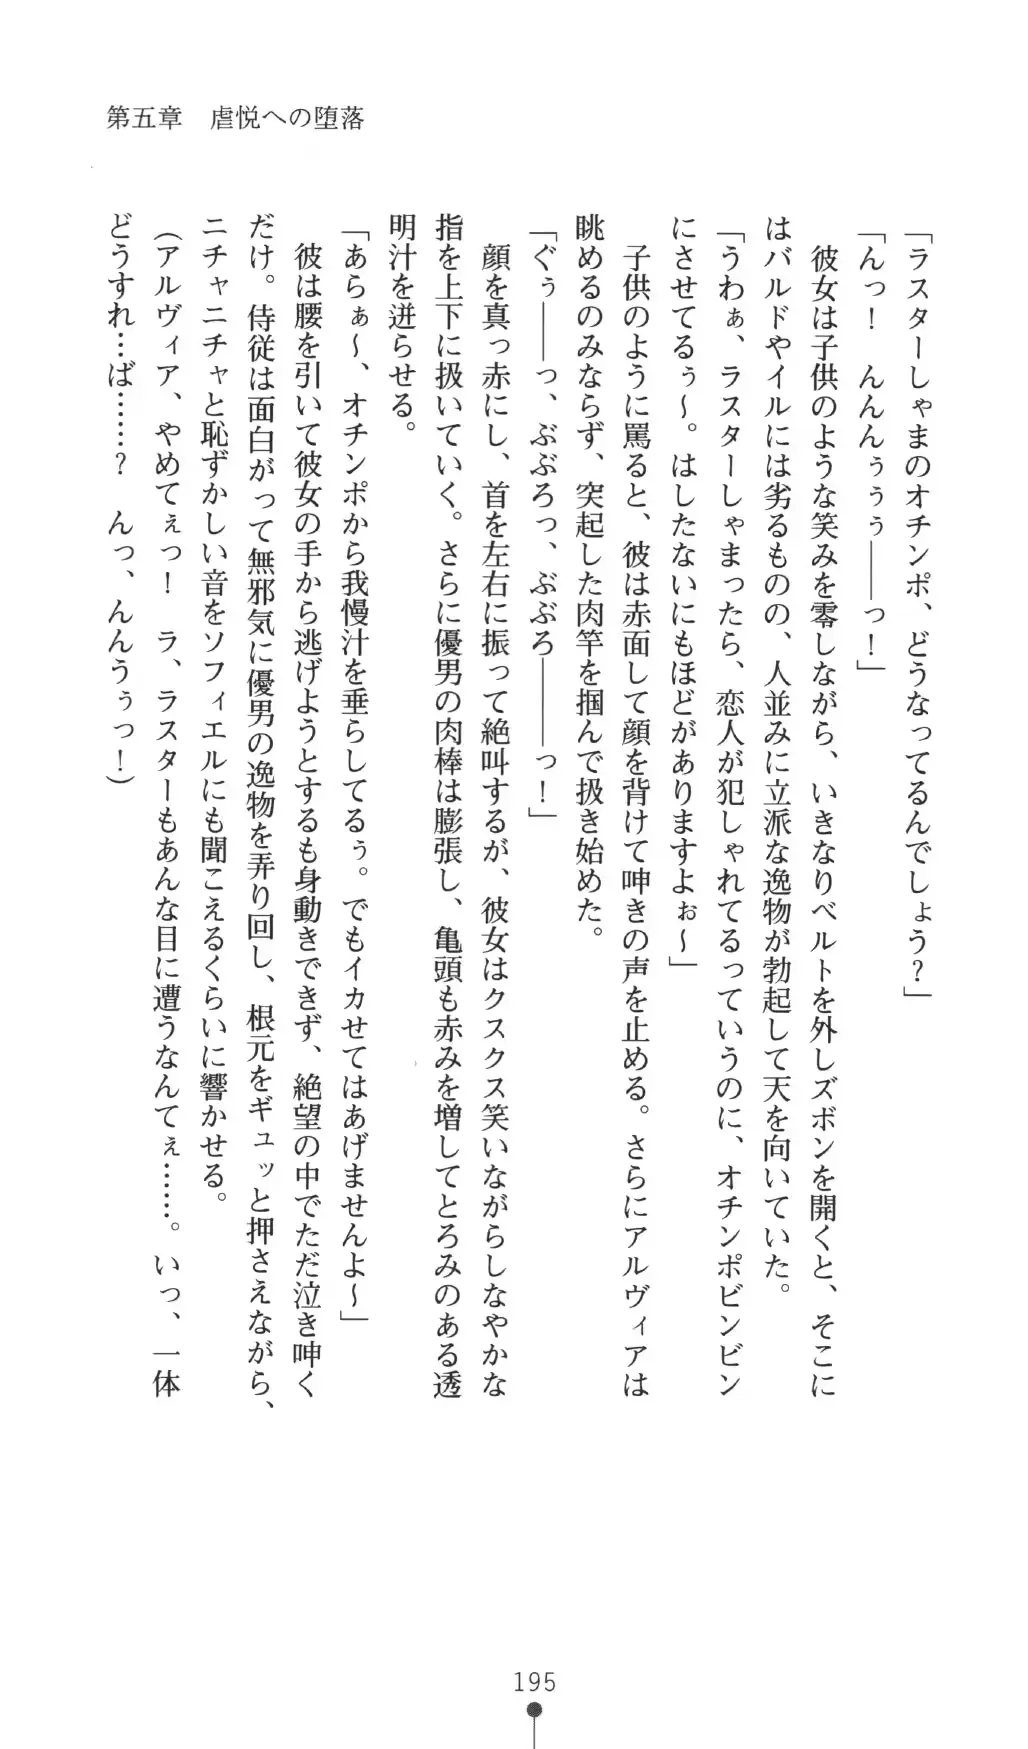 第五章　虐悦への堕落
「ラスターしゃまのオチンポ、どうなってるんでしょう？」
「んっ！　んんんぅぅぅ――っ！」
　彼女は子供のような笑みを零しながら、いきなりベルトを外しズボンを開くと、そこに
はバルドやイルには劣るものの、人並みに立派な逸物が勃起して天を向いていた。
「うわぁ、ラスターしゃまったら、恋人が犯しゃれてるっていうのに、オチンポビンビン
にさせてるぅ～。はしたないにもほどがありますよぉ～」
　子供のように罵ると、彼は赤面して顔を背けて呻きの声を止める。さらにアルヴィアは
眺めるのみならず、突起した肉竿を掴んで扱き始めた。
「ぐぅ――っ、ぶぶろっ、ぶぶろ―――っ！」
　顔を真っ赤にし、首を左右に振って絶叫するが、彼女はクスクス笑いながらしなやかな
指を上下に扱いていく。さらに優男の肉棒は膨張し、亀頭も赤みを増してとろみのある透
明汁を迸らせる。
「あらぁ～、オチンポから我慢汁を垂らしてるぅ。でもイカせてはあげませんよ～」
　彼は腰を引いて彼女の手から逃げようとするも身動きできず、絶望の中でただ泣き呻く
だけ。侍従は面白がって無邪気に優男の逸物を弄り回し、根元をギュッと押さえながら、
ニチャニチャと恥ずかしい音をソフィエルにも聞こえるくらいに響かせる。
（アルヴィア、やめてぇっ！　ラ、ラスターもあんな目に遭うなんてぇ……。いっ、一体
どうすれ…ば……？　んっ、んんうぅっ！）
195